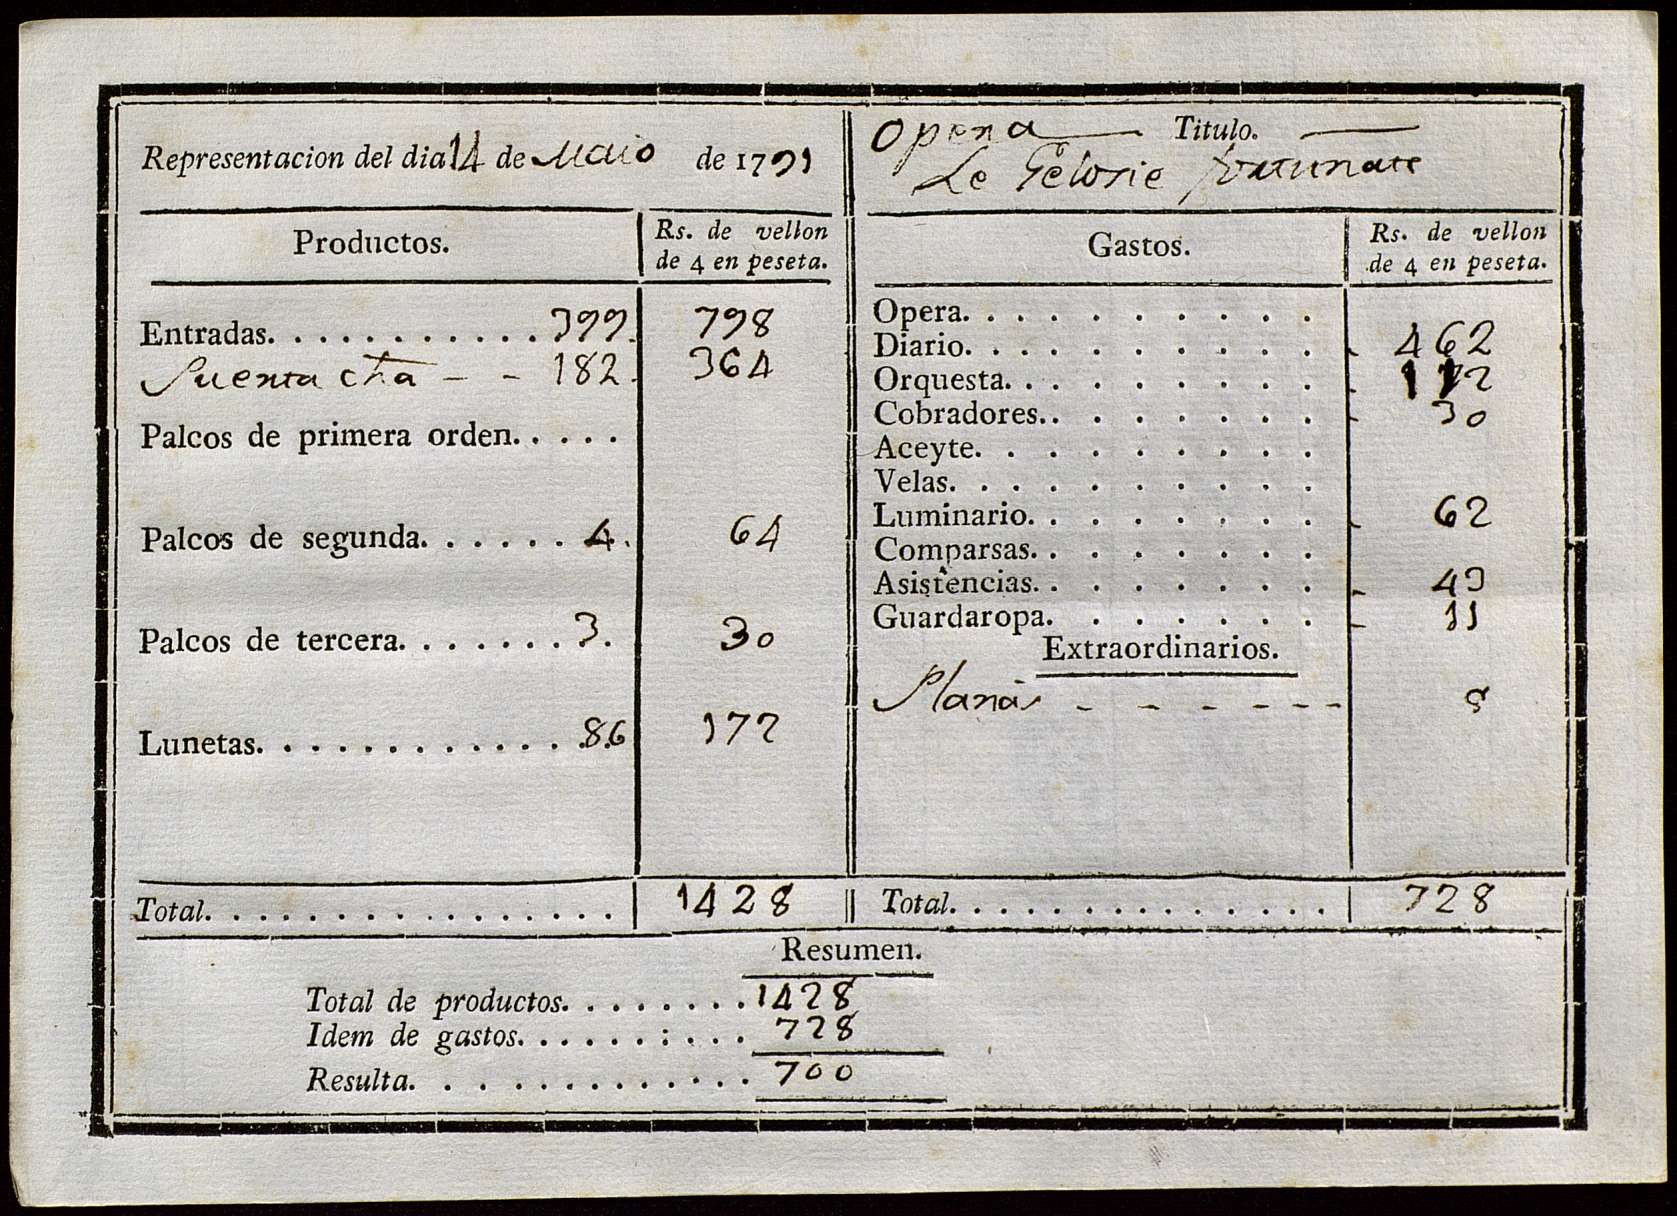 Representacion del dia 14 de Maio de 1791
Productos.
Rs. de vellon
de 4 en peseta.
Entradas. . . . . . . . . . . 399. 798
Puerta cha - - 182. 364
Palcos de primera orden. . . . .
Palcos de segunda. . . . . . 4. 64
Palcos de tercera. . . . . . . 3. 30
Lunetas. . . . . . . . . . . . . 86 172
Total. . . . . . . . . . . . . . . . 1428
Opera — Titulo. —
Le Gelosie fortunate
Gastos.
Rs. de vellon
de 4 en peseta.
Opera. . . . . . . . . .
Diario. . . . . . . . . . 462
Orquesta. . . . . . . . . 112
Cobradores. . . . . . . . 30
Aceyte. . . . . . . . . .
Velas. . . . . . . . . .
Luminario. . . . . . . . 62
Comparsas. . . . . . . .
Asistencias. . . . . . . . 43
Guardaropa. . . . . . . 11
Extraordinarios.
Planas - - - - - - - 8
Total. . . . . . . . . . . . . . . 728
Resumen.
Total de productos. . . . . . . . 1428
Idem de gastos. . . . . . : . . . 728
Resulta. . . . . . . . . . . . 700